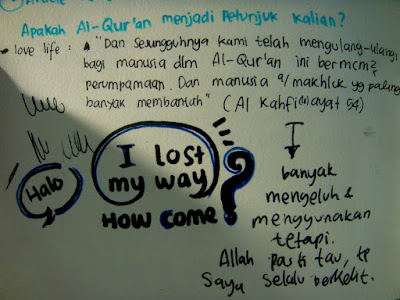 Apakah Al-Qur'an menjadi petunjuk kalian?
• love life : "Dan Sesungguhnya kami telah mengulang-ulangi
bagi manusia dlm Al-Qur'an ini bermcm2
perumpamaan. Dan manusia a/ makhluk yg paling
banyak membantah" (Al Kahfi ayat 54)
Halo
I lost
my way
HOW COME?
banyak
mengeluh &
menggunakan
tetapi.
Allah pasti tau, tp
Saya selalu berkelit.